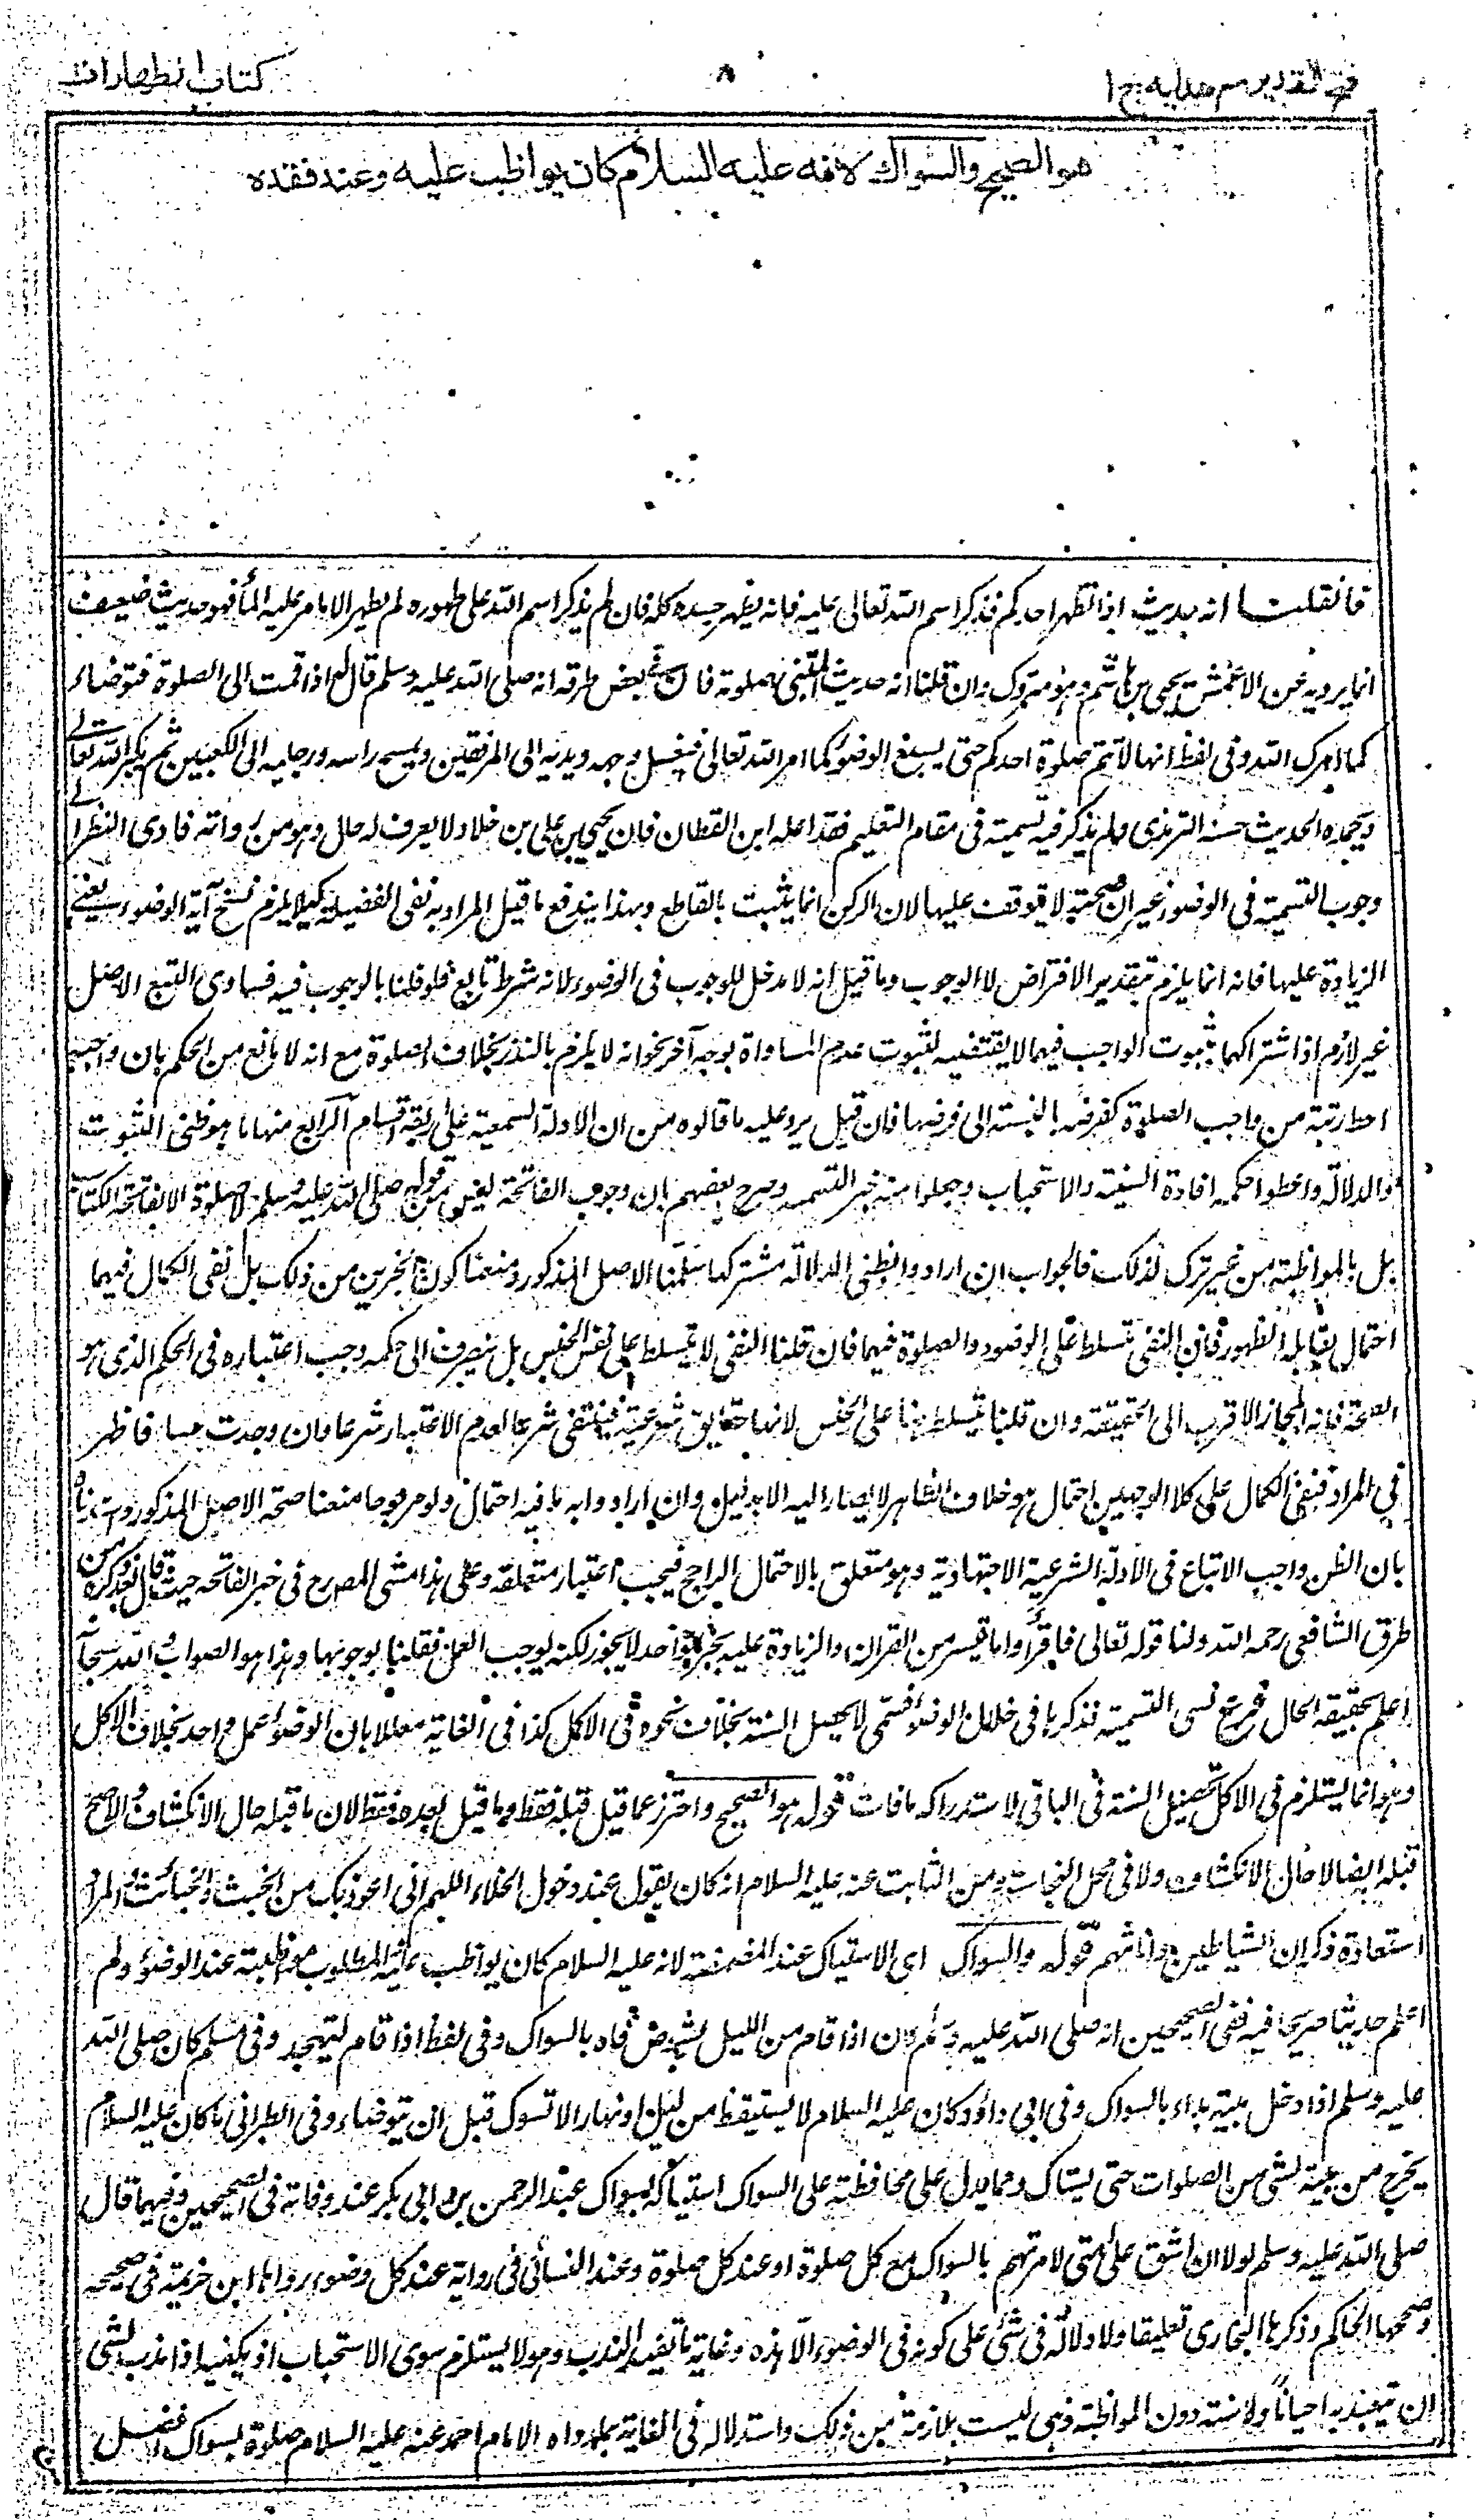 فتح القدير مع هدايه ج ١
٨
كتاب الطهارات
هو الصحيح والسواك لانه عليه السلام كان يواظب عليه وعند فقده
فان قلت انه بحديث اذا تطهر احدكم فذكر اسم الله تعالى عليه فانه يطهر جسده كله فان لم يذكر اسم الله على طهوره لم يطهر الا ما مر عليه الماء فهو حديث ضعيف
انما يرويه عن الاعمش يحيى بن هاشم وهو متروك وان قلنا انه حديث المسئ صلوته فان في بعض طرقه انه صلى الله عليه وسلم قال له اذا قمت الى الصلوة فتوضاء
كما امرك الله وفى لفظ انها لا تتم صلوة احدكم حتى يسبغ الوضوء كما امر الله تعالى فيغسل وجهه ويديه الى المرفقين ويمسح راسه ورجليه الى الكعبين ثم يكبر الله تعالى
ويحمده الحديث حسنه الترمذى ولم يذكر فيه تسمية فى مقام التعليم فقد اعله ابن القطان فان يحيى بن على بن خلاد لا يعرف له حال وهو من رواته فادى النظر الى
وجوب التسمية فى الوضوء غير ان صحته لا يتوقف عليها لان الركن انما يثبت بالقاطع وبهذا يندفع ما قيل المراد به نفى الفضيلة كيلا يلزم نسخ آية الوضوء يعنى
الزيادة عليها فانه انما يلزم بتقدير الافتراض لا الوجوب وما قيل انه لا مدخل للوجوب فى الوضوء لانه شرط تابع فلو قلنا بالوجوب فيه لساوى التبع الاصل
غير لازم اذ اشتراكهما بثبوت الواجب فيهما لا يقتضيه لثبوت عدم المساواة بوجه آخر نحو انه لا يلزم بالنذر بخلاف الصلوة مع انه لا مانع من الحكم بان واجبه
احط رتبة من واجب الصلوة كفرضه بالنسبة الى فرضها فان قيل يرد عليه ما قالوه من ان الادلة السمعية على اربعة اقسام الرابع منها ما هو ظنى الثبوت
والدلالة واعطوا حكمه افادة السنية والاستحباب وجعلوا منه خبر التسمية وصرح بعضهم بان وجوب الفاتحة ليس من قوله صلى الله عليه وسلم لا صلوة الا بفاتحة الكتاب
بل بالمواظبة من غير ترك لذلك فالجواب ان ارادوا بظنى الدلالة مشتركها سلمنا الاصل المذكور ومنعنا كون الخبرين من ذلك بل نفى الكمال فيهما
احتمال يقابله الظهور فان النفى متسلط على الوضوء والصلوة فيهما فان قلنا النفى لا يتسلط على نفس الجنس بل ينصرف الى حكمه وجب اعتباره فى الحكم الذى هو
الصحة فانه المجاز الاقرب الى الحقيقة وان قلنا يتسلط هنا على الجنس لانها حقايق شرعية فينتفى شرعا لعدم الاعتبار شرعا وان وجدت حسا فاظهر
فى المراد فنفى الكمال على كلا الوجهين احتمال هو خلاف الظاهر لا يصار اليه الا بدليل وان ارادوا به ما فيه احتمال ولو مرجوحا منعنا صحة الاصل المذكور واسندناه
بان الظن واجب الاتباع فى الادلة الشرعية الاجتهادية وهو متعلق بالاحتمال الراجح فيجب اعتبار متعلقه وعلى هذا مشى المصرح فى خبر الفاتحة حيث قال بعد ذكره من
طرق الشافعى رحمه الله ولنا قوله تعالى فاقرأوا ما تيسر من القرآن والزيادة عليه بخبر الواحد لا يجوز لكنه يوجب العمل فقلنا بوجوبها وهذا هو الصواب والله سبحانه
اعلم بحقيقة الحال فرع نسى التسمية فذكرها فى خلال الوضوء فسمى لا يحصل السنة بخلاف نحوه فى الاكل كذا فى الغاية معللا بان الوضوء عمل واحد بخلاف الاكل
وهو انما يستلزم فى الاكل تحصيل السنة فى الباقى لا استدراكه ما فات قوله هو الصحيح واحترز عما قيل قبله فقط وما قيل بعده فقط لان ما قبله حال الانكشاف والاصح
قبله ايضا لا حال الانكشاف ولا فى محل النجاسة ومن الثابت عنه عليه السلام انه كان يقول عند دخول الخلاء اللهم انى اعوذ بك من الخبث والخبائث والمراد
استعاذة ذكران الشياطين واناثهم قوله والسواك اى الاستياك عند المضمضة لانه عليه السلام كان يواظب عليه المطلوب مواظبته عند الوضوء ولم
اعلم حديثا صريحا فيه ففى الصحيحين انه صلى الله عليه وسلم كان اذا قام من الليل يشوص فاه بالسواك وفى لفظ اذا قام ليتهجد وفى مسلم كان صلى الله
عليه وسلم اذا دخل بيته بداء بالسواك وفى ابى داؤد كان عليه السلام لا يستيقظ من ليل او نهار الا تسوك قبل ان يتوضاء وفى الطبرانى ما كان عليه السلام
يخرج من بيته لشئ من الصلوات حتى يستاك ومما يدل على محافظته على السواك استياكه بسواك عبد الرحمن بن ابى بكر عند وفاته فى الصحيحين وفيهما قال
صلى الله عليه وسلم لولا ان اشق على امتى لامرتهم بالسواك مع كل صلوة او عند كل صلوة وعند النسائى فى رواية عند كل وضوء رواها ابن خزيمة فى صحيحه
وصححها الحاكم وذكرها البخارى تعليقا ولا دلالة فى شئ على كونه فى الوضوء الا هذه وغاية ما يفيد الندب وهو لا يستلزم سوى الاستحباب اذ يكفيه اذا ندب لشئ
ان يتعبد به احيانا ولا سنة دون المواظبة وهى ليست بلازمة من ذلك واستدلاله فى الغاية بما رواه الامام احمد عنه عليه السلام صلوة بسواك افضل